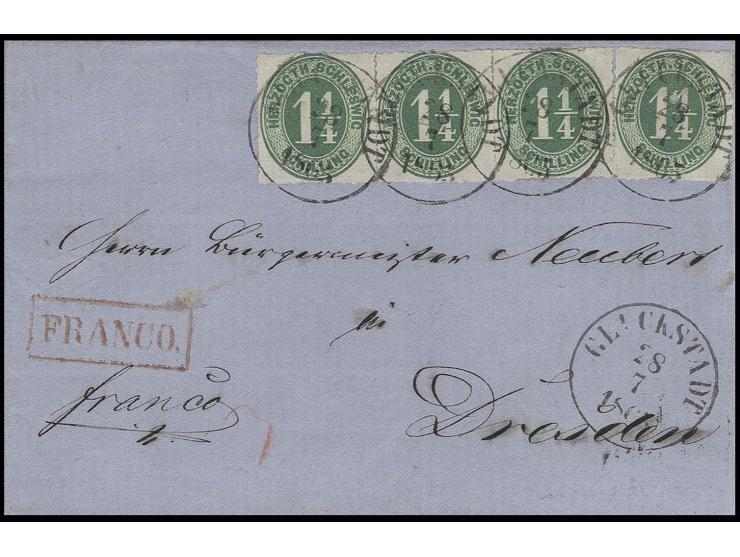 HERZOGTH. SCHLESWIG
1¼
SCHILLING
HERZOGTH. SCHLESWIG
1¼
SCHILLING
HERZOGTH. SCHLESWIG
1¼
SCHILLING
HERZOGTH. SCHLESWIG
1¼
SCHILLING
Herrn Bürgermeister Neubert
in
Dresden
FRANCO.
franco
GLÜCKSTADT
28
7